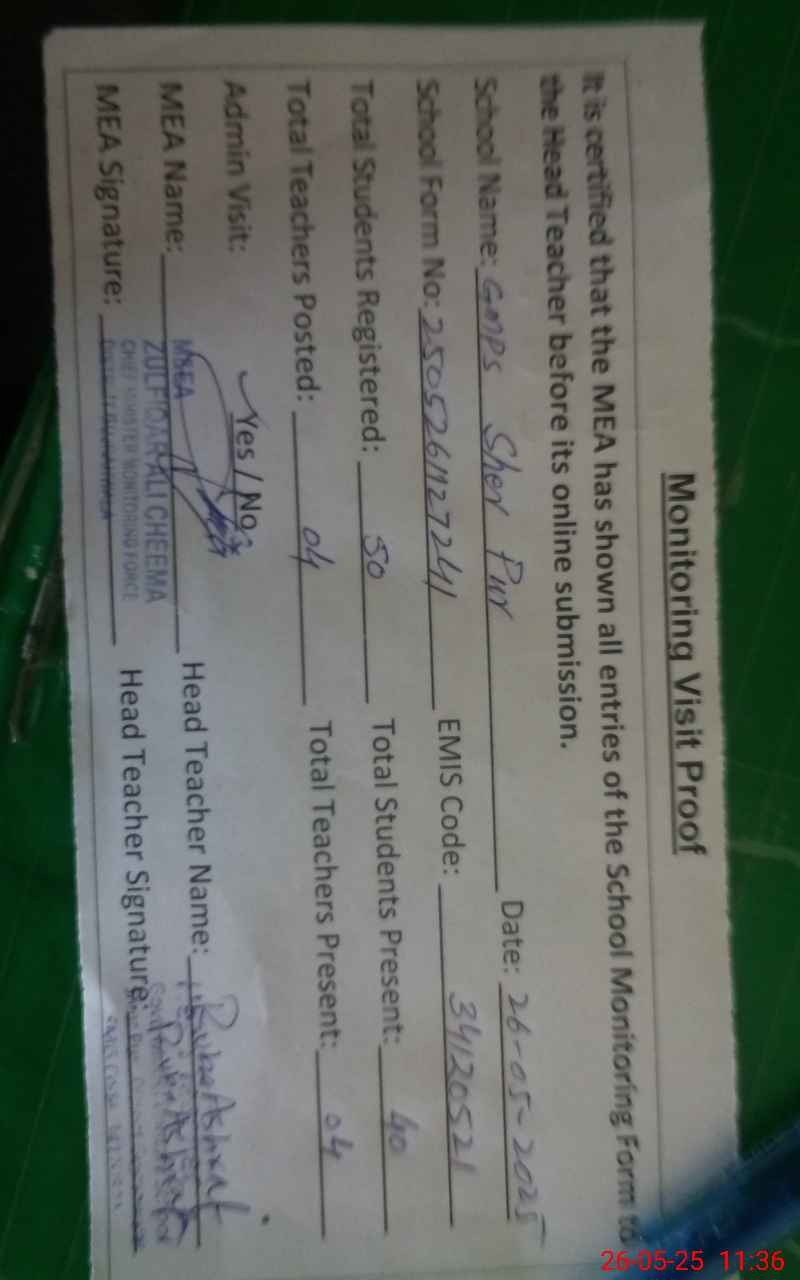 Monitoring Visit Proof
It is certified that the MEA has shown all entries of the School Monitoring Form to
the Head Teacher before its online submission.
School Name: GMPS Sher Pur Date: 26-05-2025
School Form No: 250526112727241 EMIS Code: 34120521
Total Students Registered: 50 Total Students Present: 40
Total Teachers Posted: 04 Total Teachers Present: 04
Admin Visit: Yes / No
MEA Name: MNEA ZULFIQAR ALI CHEEMA Head Teacher Name: Ruba Ashraf
CHIEF MINISTER MONITORING FORCE
MEA Signature: Head Teacher Signature:
EMIS Code
26-05-25 11:36